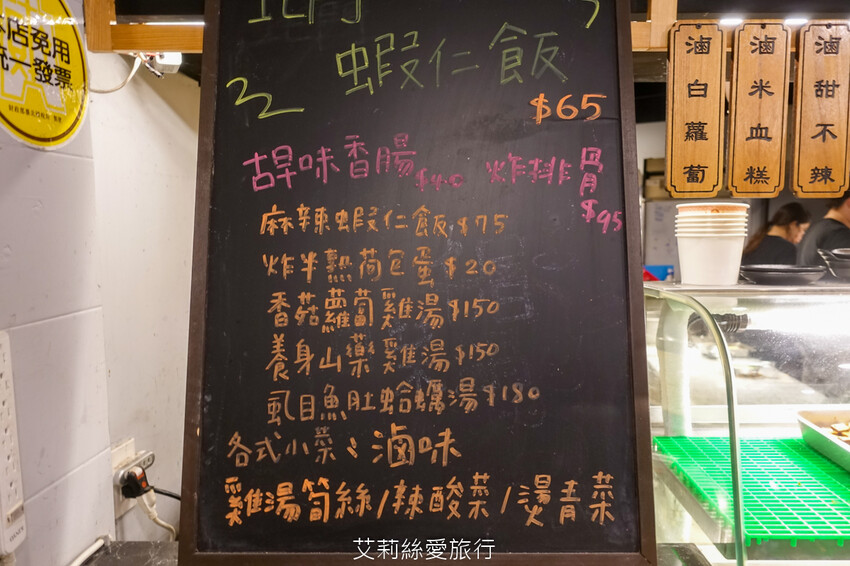 本店免用
統一發票
蝦仁飯
$65
古早味香腸 $40 炸排骨 $95
麻辣蝦仁飯 $75
炸半熟荷包蛋 $20
香菇蘿蔔雞湯 $150
養身山藥雞湯 $150
虱目魚肚蛤蠣湯 $180
各式小菜：滷味
雞湯筍絲/辣酸菜/燙青菜
滷白蘿蔔
滷米血糕
滷甜不辣
艾莉絲愛旅行